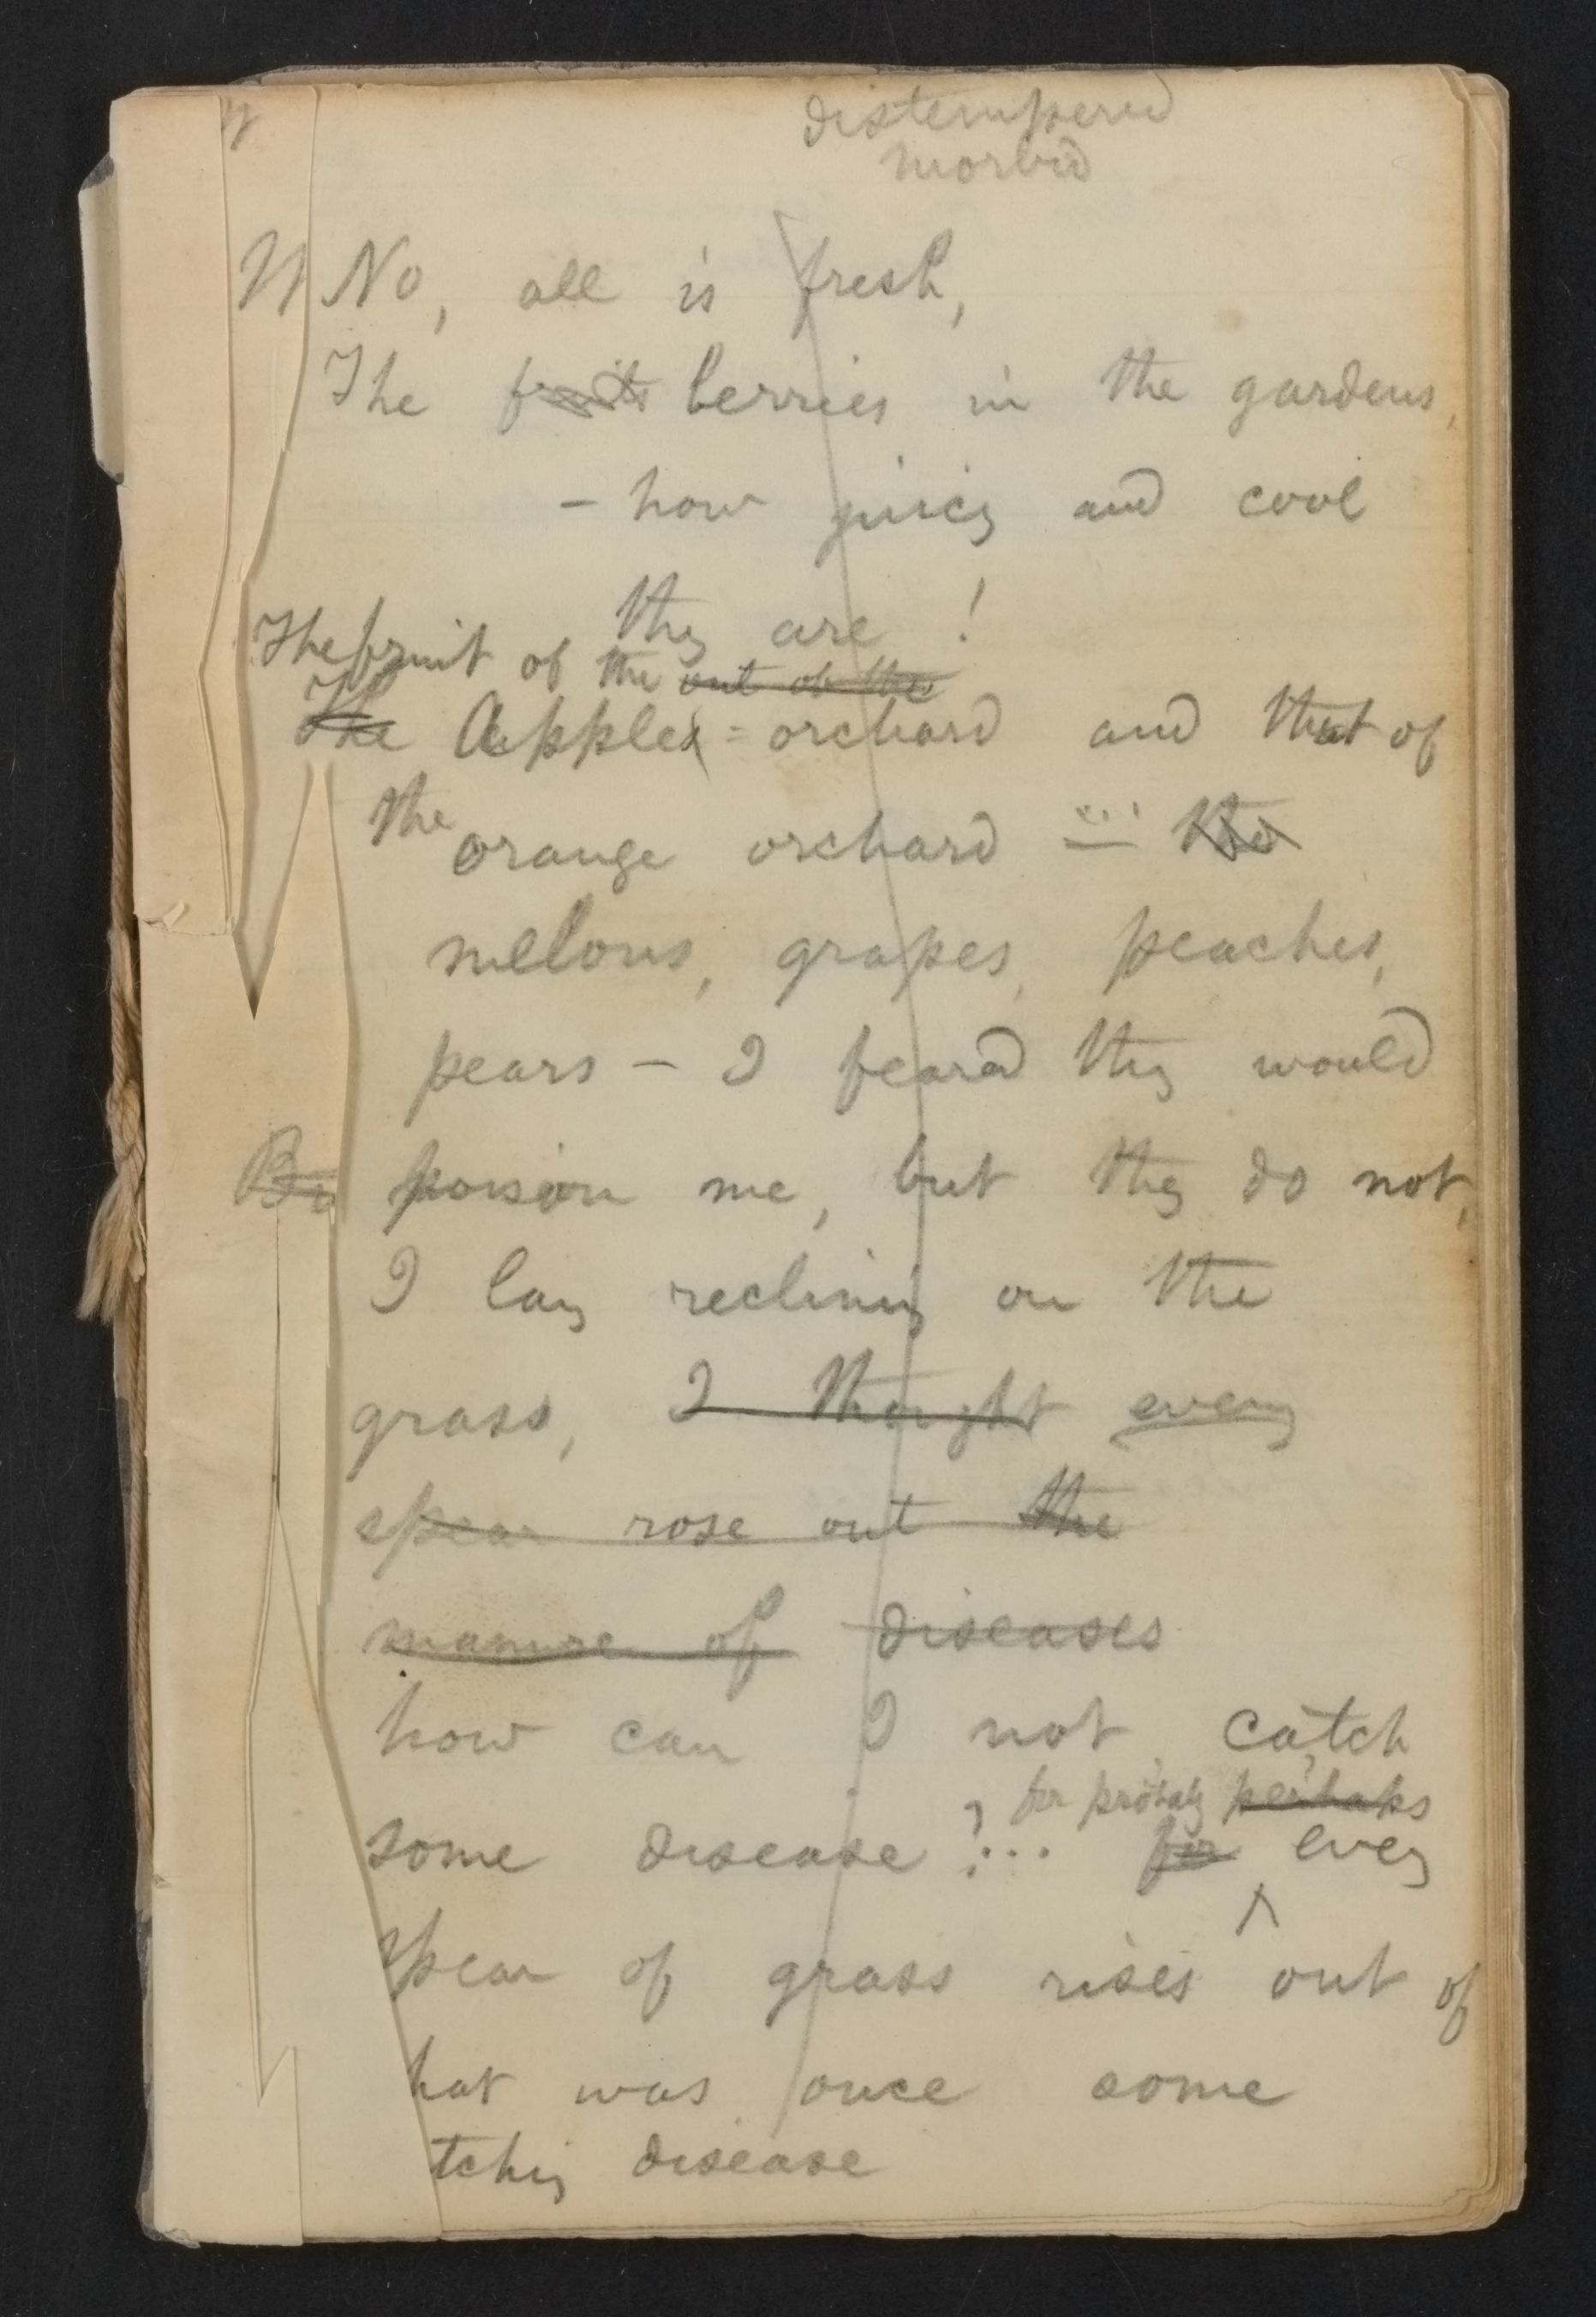 distempered
morbid
No, all is fresh,
The fruits berries in the gardens,
– how juicy and cool
they are !
The fruit of the out of the
The Apples = orchard and that of
the orange orchard — the
melons, grapes, peaches,
pears – I feared they would
Bu poison me, but they do not,
I lay reclining on the
grass, I thought every
spear rose out the
manure of diseases
how can I not catch
for probably perhaps
some disease ?!... for every
spear of grass rises out of
hat was once some
tching disease